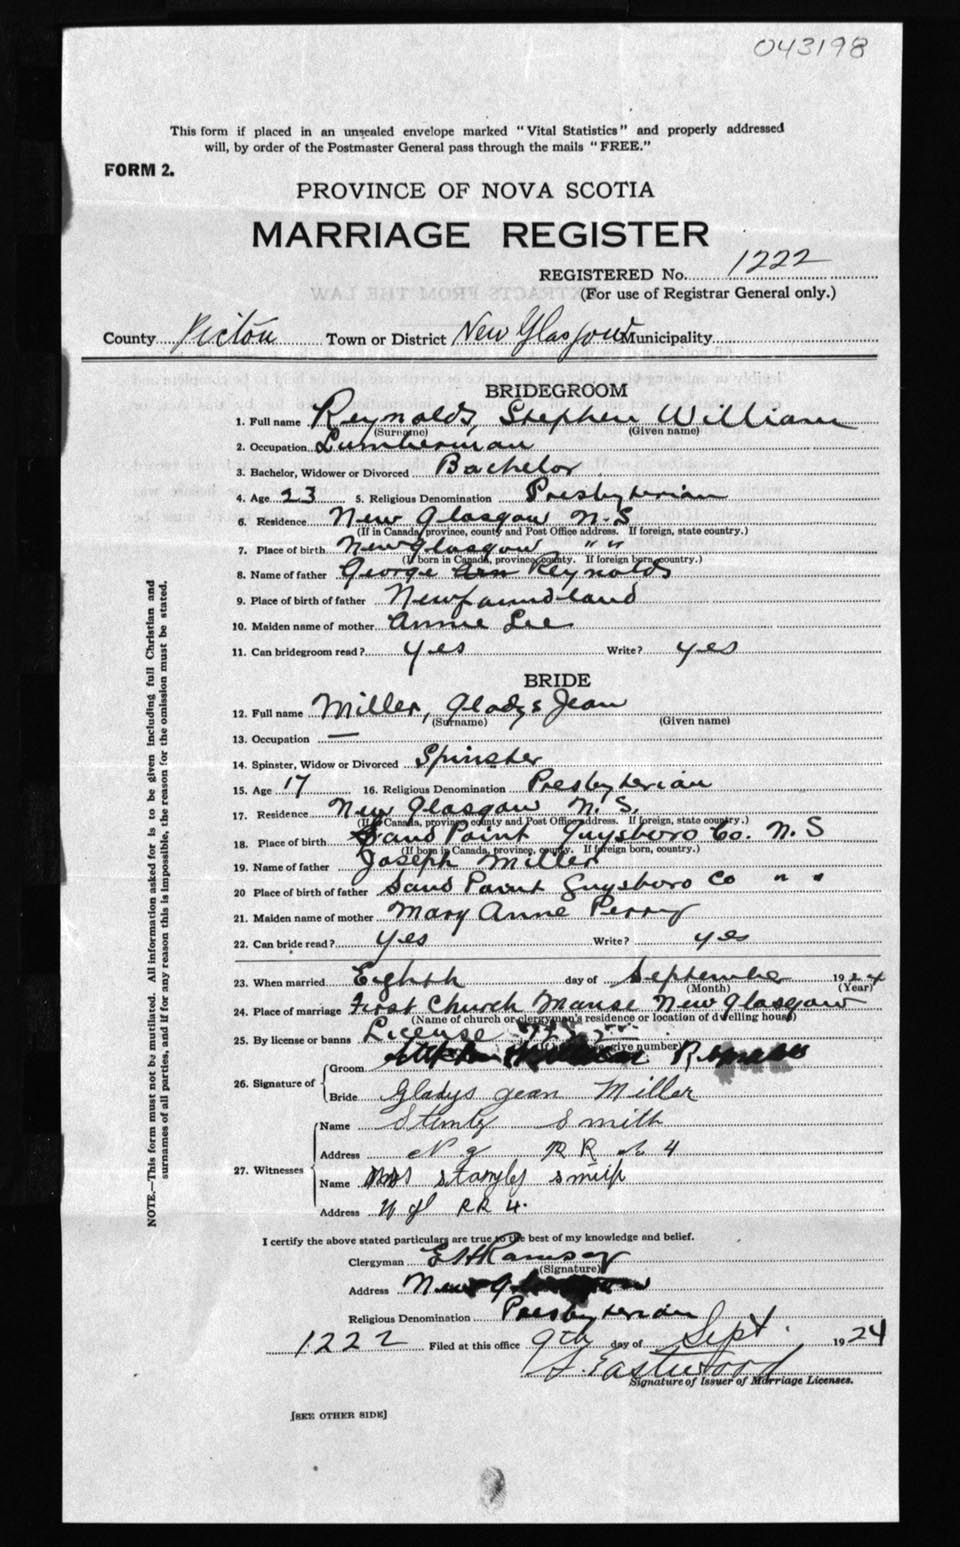 043198
This form if placed in an unsealed envelope marked "Vital Statistics" and properly addressed
will, by order of the Postmaster General pass through the mails "FREE."
FORM 2.
PROVINCE OF NOVA SCOTIA
MARRIAGE REGISTER
REGISTERED No. 1222
(For use of Registrar General only.)
County Pictou Town or District New Glasgow Municipality
BRIDEGROOM
1. Full name Reynolds, Stephen William
(Surname) (Given name)
2. Occupation Lumberman
3. Bachelor, Widower or Divorced Bachelor
4. Age 23 5. Religious Denomination Presbyterian
6. Residence New Glasgow N.S
(If in Canada, province, county and Post Office address. If foreign, state country.)
7. Place of birth New Glasgow " "
(If born in Canada, province, county. If foreign born, country.)
8. Name of father George Reynolds
9. Place of birth of father Newfoundland
10. Maiden name of mother Annie Lee
11. Can bridegroom read? yes Write? yes
BRIDE
12. Full name Miller, Gladys Jean
(Surname) (Given name)
13. Occupation —
14. Spinster, Widow or Divorced Spinster
15. Age 17 16. Religious Denomination Presbyterian
17. Residence New Glasgow N. S.
(If in Canada, province, county and Post Office address. If foreign, state country.)
18. Place of birth Sand Point Guysboro Co. N. S
(If born in Canada, province, county. If foreign born, country.)
19. Name of father Joseph Miller
20 Place of birth of father Sand Point Guysboro Co " "
21. Maiden name of mother Mary Anne Perry
22. Can bride read? yes Write? yes
23. When married Eighth day of September 1924
(Month) (Year)
24. Place of marriage First Church Manse New Glasgow
(Name of church or clergyman's residence or location of dwelling house)
25. By license or banns License
give number)
26. Signature of Groom Stephen William Reynolds
Bride Gladys Jean Miller
27. Witnesses Name Stanly Smith
Address N g R R No 4
Name Mrs Stanley Smith
Address N g RR 4.
I certify the above stated particulars are true to the best of my knowledge and belief.
Clergyman E H Ramsay
(Signature)
Address New Glasgow
Religious Denomination Presbyterian
1222 Filed at this office 9th day of Sept. 1924
Eastwood
Signature of Issuer of Marriage Licenses.
[SEE OTHER SIDE]
NOTE.—This form must not be mutilated. All information asked for is to be given including full Christian and
surnames of all parties, and if for any reason this is impossible, the reason for the omission must be stated.